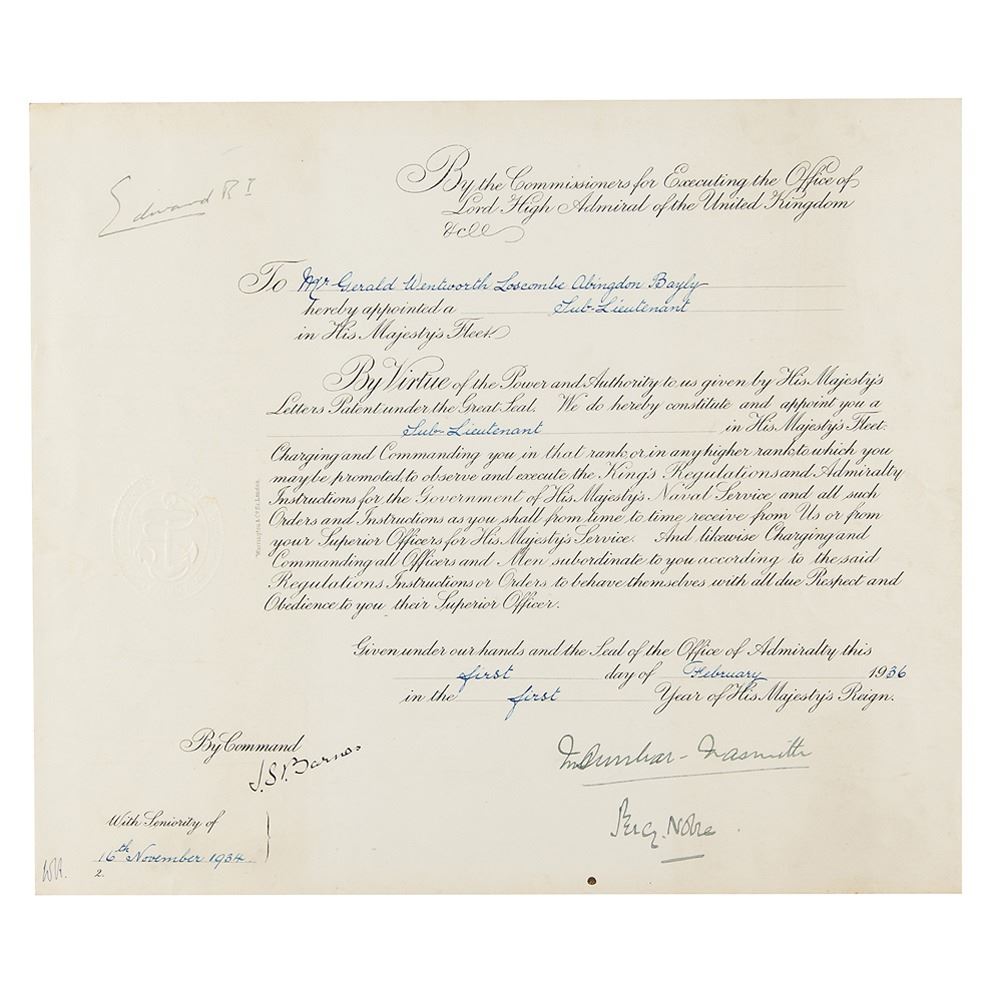 Edward R I
By the Commissioners for Executing the Office of
Lord High Admiral of the United Kingdom
&c
To Mr Gerald Wentworth Loscombe Abingdon Bayly
hereby appointed a Sub-Lieutenant
in His Majesty's Fleet.
By Virtue of the Power and Authority to us given by His Majesty's
Letters Patent under the Great Seal. We do hereby constitute and appoint you a
Sub-Lieutenant in His Majesty's Fleet.
Charging and Commanding you in that rank, or in any higher rank to which you
may be promoted, to observe and execute the King's Regulations and Admiralty
Instructions for the Government of His Majesty's Naval Service and all such
Orders and Instructions as you shall from time to time receive from Us or from
your Superior Officers for His Majesty's Service. And likewise Charging and
Commanding all Officers and Men subordinate to you according to the said
Regulations Instructions or Orders to behave themselves with all due Respect and
Obedience to you their Superior Officer.
Given under our hands and the Seal of the Office of Admiralty this
first day of February 1936
in the first Year of His Majesty's Reign.
By Command
J. S. Barnes
M Dunbar-Nasmith
Percy Noble
With Seniority of
16th November 1934
2.